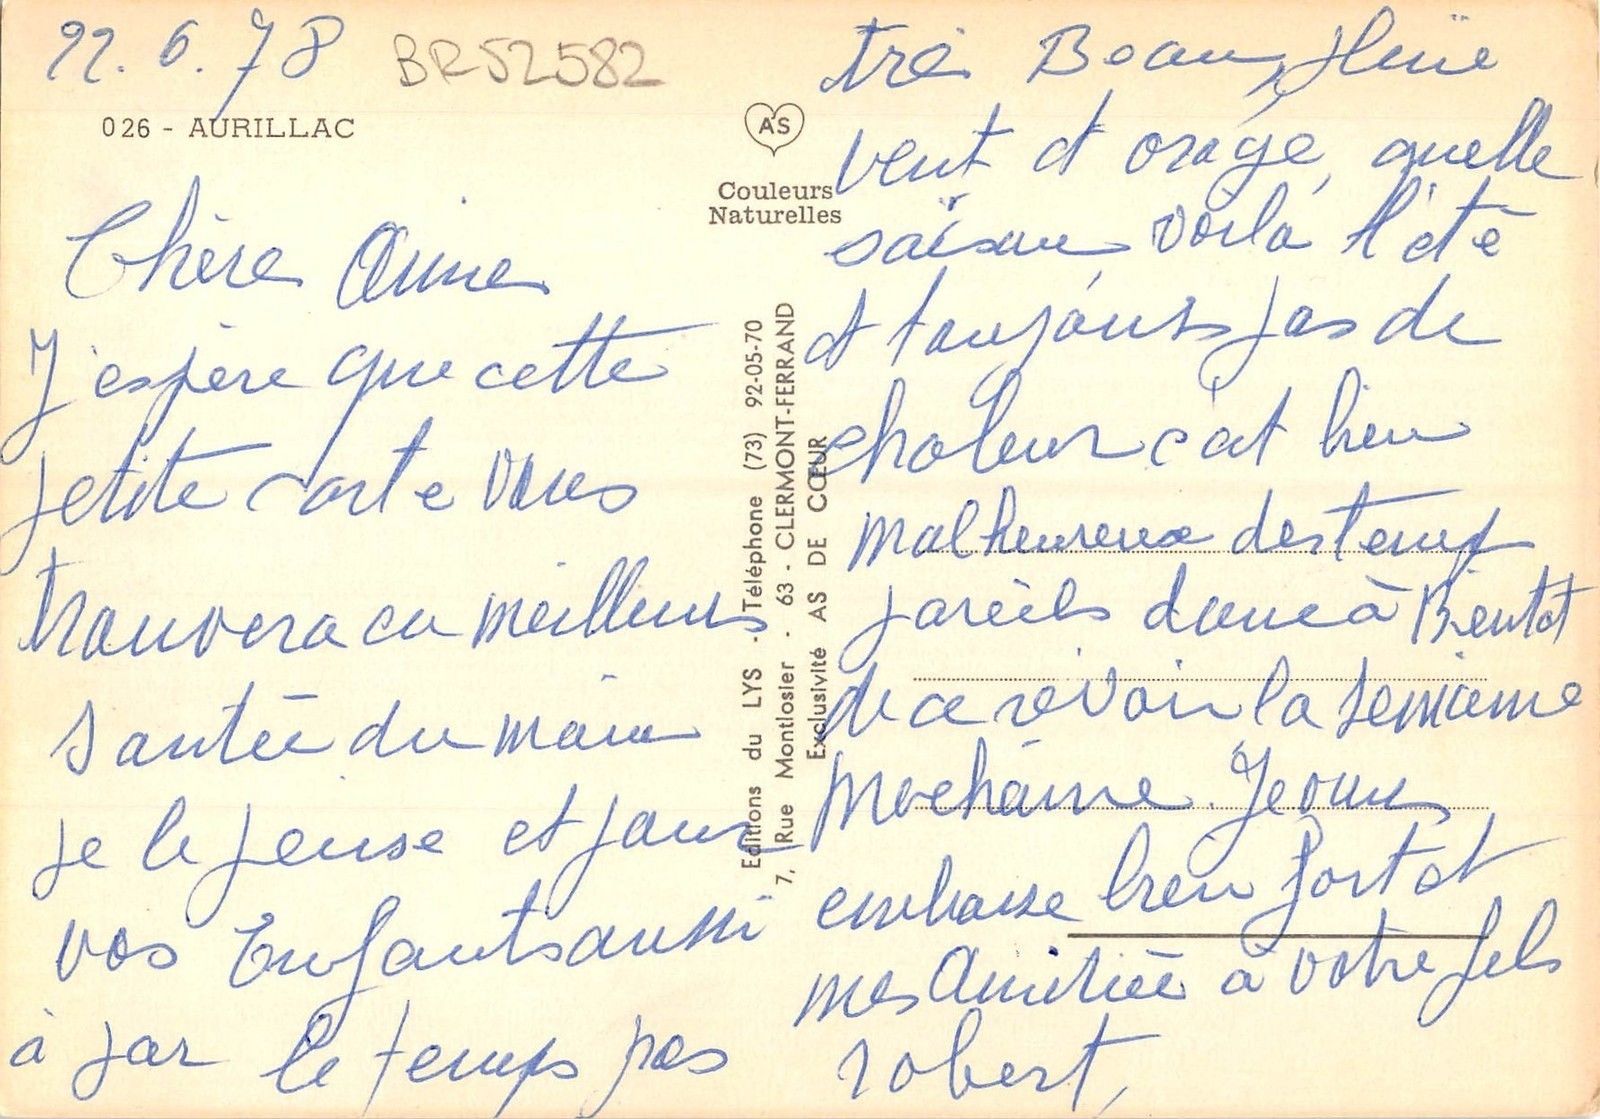 22.6.78 BR52582
026 - AURILLAC
Chère Anne
J'espère que cette
petite carte vous
trouvera en meilleurs
santée du mains
je le pense et pour
vos Enfants aussi
à par le temps pas
AS
Couleurs
Naturelles
Editions du LYS - Téléphone (73) 92-05-70
7, Rue Montlosier - 63 - CLERMONT-FERRAND
Exclusivité AS DE CŒUR
très Beau, pluïe
vent et oragé, quelle
saison voila l'été
et toujours pas de
chaleur c'est bien
malheureux des temps
pareils donc à Bientot
de ce revoir la semaine
prochaine. Je vous
embrasse bien fort et
mes Amitiée à votre fils
robert,